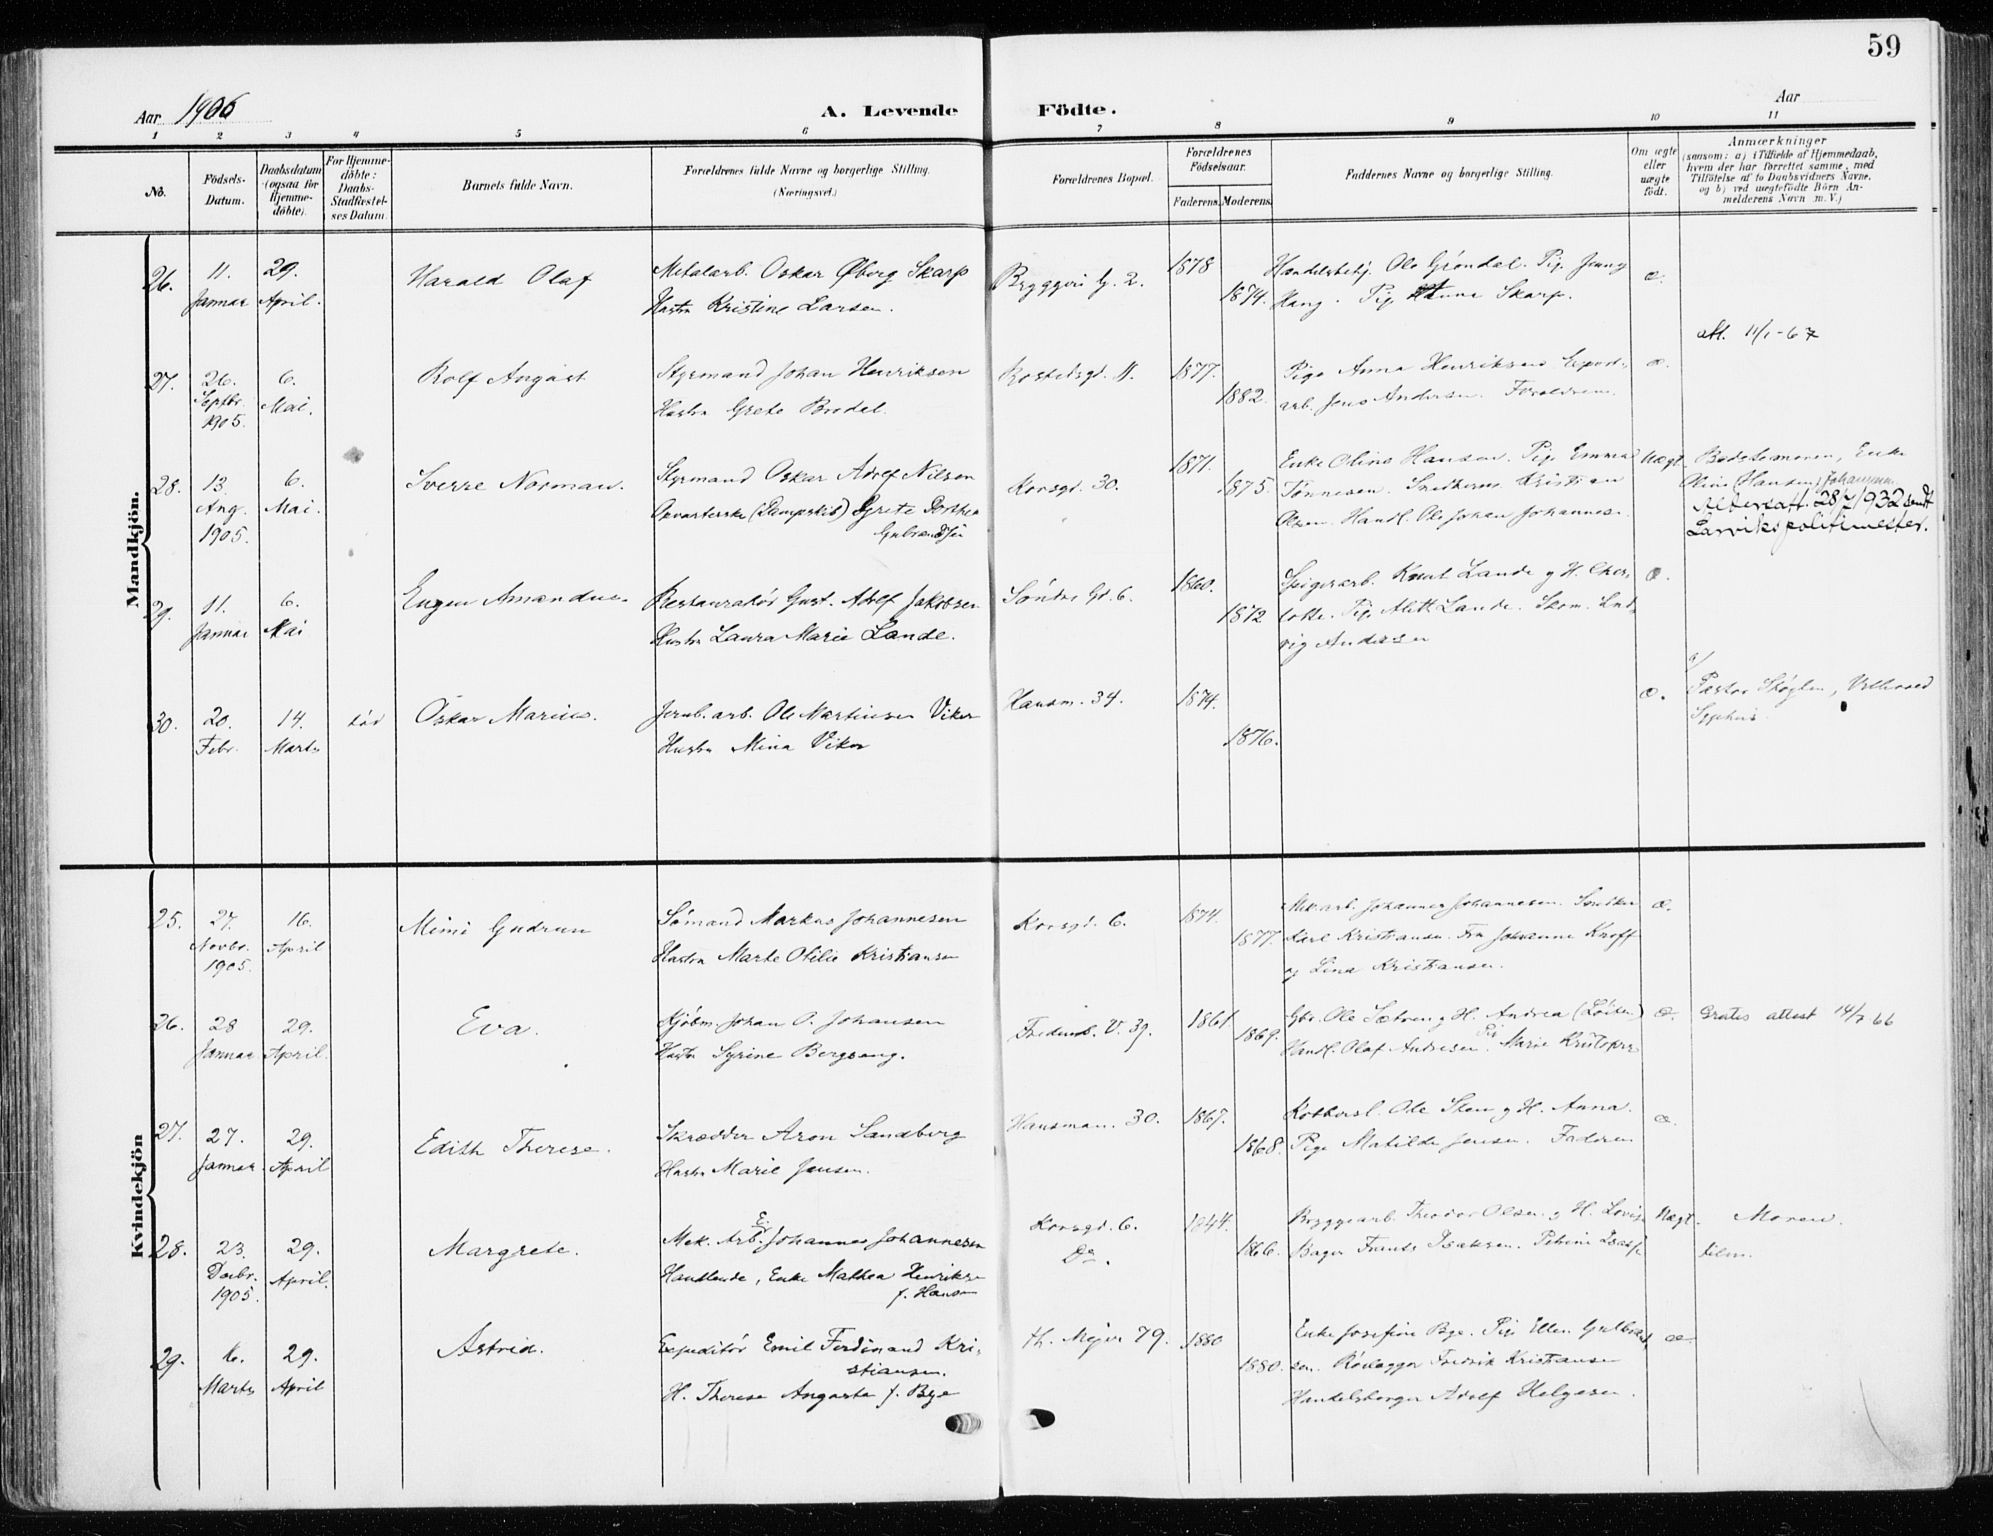 59
Aar 1906
A. Levende Födte.
Aar
1 2 3 4 5 6 7 8 9 10 11
No.
Födsels-Datum.
Daabsdatum (ogsaa for Hjemme-döbte).
For Hjemme-döbte: Daabs-Stadfæstel-ses Datum.
Barnets fulde Navn.
Forældrenes fulde Navne og borgerlige Stilling.
(Næringsvei.)
Forældrenes Bopæl.
Forældrenes Födselsaar.
Faderens. Moderens.
Faddernes Navne og borgerlige Stilling.
Om ægte eller uægte födt.
Anmærkninger
(saasom: a) i Tilfælde af Hjemmedaab,
hvem der har forrettet samme, med
Tilföielse af to Daabsvidners Navne,
og b) ved uægtefödte Börn An-
melderens Navn m. V.)
Mandkjön.
26. 11. Januar 29. April. Harald Olaf
Metalarb. Oskar Øberg Skarp
Hustru Kristine Larsen.
Bryggeri G. 2. 1878 1874.
Handelsbetj. Ole Gröndal. Pig. Jenny
Haug. Pig. Anna Skarp.
æ.
att. 11/1-67
27. 26. Septbr. 1905. 6. Mai. Rolf August
Styrmand Johan Henriksen
Hustru Grete Bredal.
11. 1877. 1882.
Pige Anna Henriksen
arb. Jens Andersen. Forældrene.
æ.
28. 13. Aug. 1905. 6. Mai. Sverre Norman.
Styrmand Oskar Adolf Nilsen
Opvarterske (Dampskib) Grete Dorthea
Gulbrandsen
Korsgd. 30. 1871. 1875.
Enke Oline Hansen. Pige Emma
Tønnesen. Snedkerm. Kristian
Olsen. Handl. Ole Johan Johannesen.
Uægt.
Bedstemoren, Enke
Oline Hansen, Johannesen
Aldersatt. 28/7 1932 sendt
Larviks politimester.
29. 11. Januar 6. Mai Eugen Amandus
Restauratör Gust. Adolf Jakobsen
Hustru Laura Marie Lande.
Söndre Gd. 6. 1860. 1872
Spigerarb. Knut Lande og H. Char-
lotte. Pige Alett Lande. Skom. Lud-
vig Andersen
æ.
30. 20. Febr. 14. Marts Oskar Marius.
Jernb. arb. Ole Martinsen Viker
Hustru Mina Viker
Hausm. 34. 1874. 1876.
æ.
a/ Pastor
Kvindekjön
25. 27. Novbr. 1905. 16. April Mimi Gudrun
Sömand Markus Johannesen
Hustru Marte Otilie Kristiansen
Korsgd. 6. 1874. 1877.
Mek arb. Johannes Johannesen.
Karl Kristiansen. Fru Johanne Knoff
og Lina Kristiansen.
æ.
26. 28 Januar 29. April. Eva.
Kjöbm. Johan O. Johansen
Hustru Syrine Bergsang.
V. 39. 1861. 1869.
Gbr. Ole Sætren og H. Andrea (Löiten)
Handl. Olaf Andresen. Pig Marie
æ.
Gratis attest 14/7 66
27. 27. Januar 29. April Edith Therese.
Skrædder Aron Sandberg
Hustru Marie Jensen.
Hausman. 30. 1867. 1868.
Ole Steen og H. Anna.
Pige Matilde Jensen. Faderen
æ.
28. 23. Decbr. 1905. 29. April. Margrete.
Mek. Arb. E. Johannes Johannesen
Handlende, Enke Mathea Henriksen
f. Hansen
Korsgd. 6. Do. 1844. 1866.
Bryggearb. Theodor Olsen og H. Lovise
Bager Frants Isaksen. Petrine
Uægt.
Moren.
29. 6. Marts 29. April Astrid.
Expeditör Emil Ferdinand Kri-
stiansen.
H. Therese Augusta f. Bye
Th. Mejer 79. 1880 1880.
Enke Josefine Bye. Pige Ellen Gulbrand-
sen. Rörlægger Fredrik Kristiansen
Handelsborger Adolf Helgesen.
æ